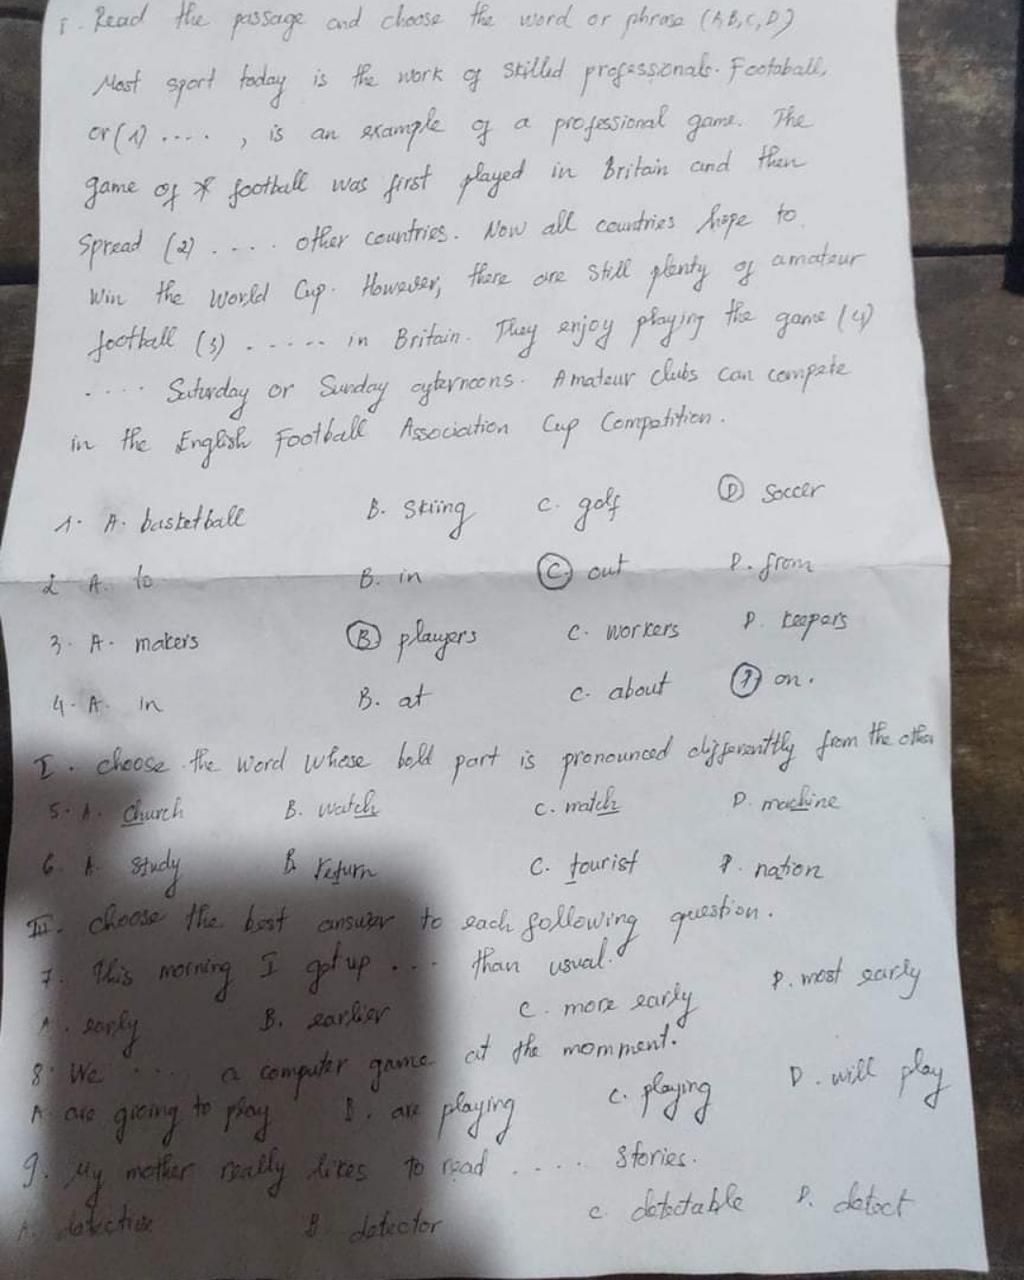 I. Read the passage and choose the word or phrase (A,B,C,D)
Most sport today is the work of skilled professionals. Footaball,
or (1) .... , is an example of a professional game. The
game of football was first played in Britain and then
Spread (2) .... other countries. Now all countries hope to
Win the World Cup. However, there are still plenty of amateur
football (3) ...... in Britain. They enjoy playing the game (4)
.... Saturday or Sunday afternoons. Amateur clubs can compete
in the English Football Association Cup Competition.
1. A. basketball B. skiing C. golf D soccer
2 A. to B. in C out D. from
3. A. makers B players C. workers D. keepers
4. A. in B. at C. about D on.
I. choose the word whose bold part is pronounced differenttly from the other
5. A. Church B. watch C. match D. machine
6. A. study B return C. tourist D. nation
III. choose the best answer to each following question.
7. This morning I got up .... than usual.
A. early B. earlier C. more early D. most early
8. We .... a computer game at the momment.
A are groing to play B. are playing C. playing D. will play
9. My mother really likes to read .... stories.
A. detective B detector C. detectable D. detect